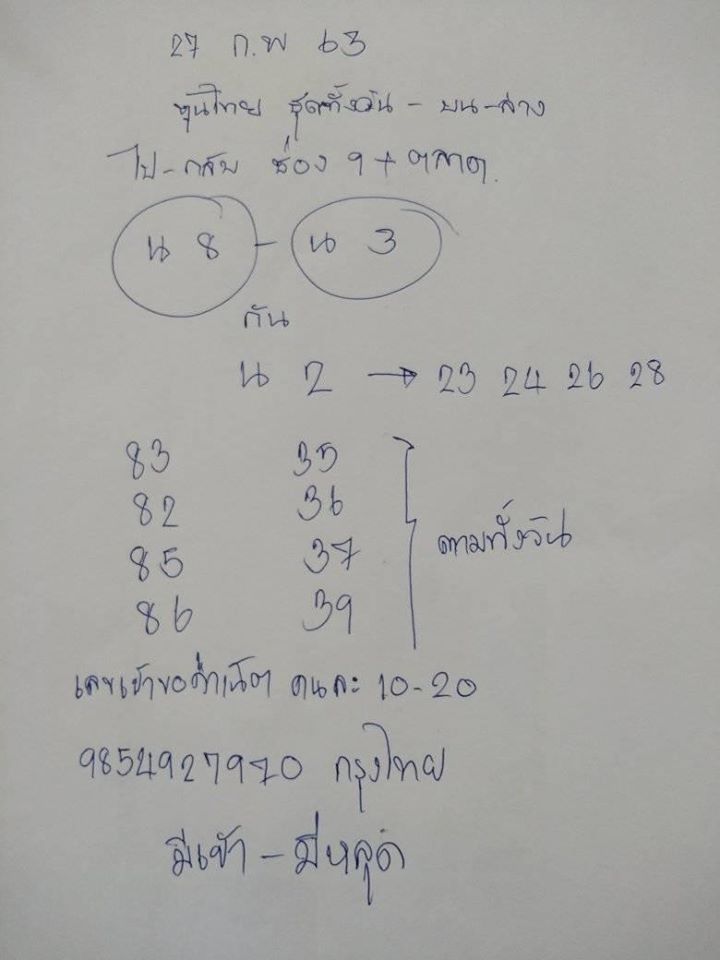 27 ก.พ 63
หุ้นไทย ชุดทั้งวัน - บน - ล่าง
ไป - กลับ ช่อง 9 + ตลาด.
น 8 - น 3
กัน
น 2 → 23 24 26 28
83 35
82 36
85 37
86 39
ตามทั้งวัน
เลขเข้าขอค่าเน็ต คนละ 10 - 20
9854927970 กรุงไทย
มีเข้า - มีหลุด